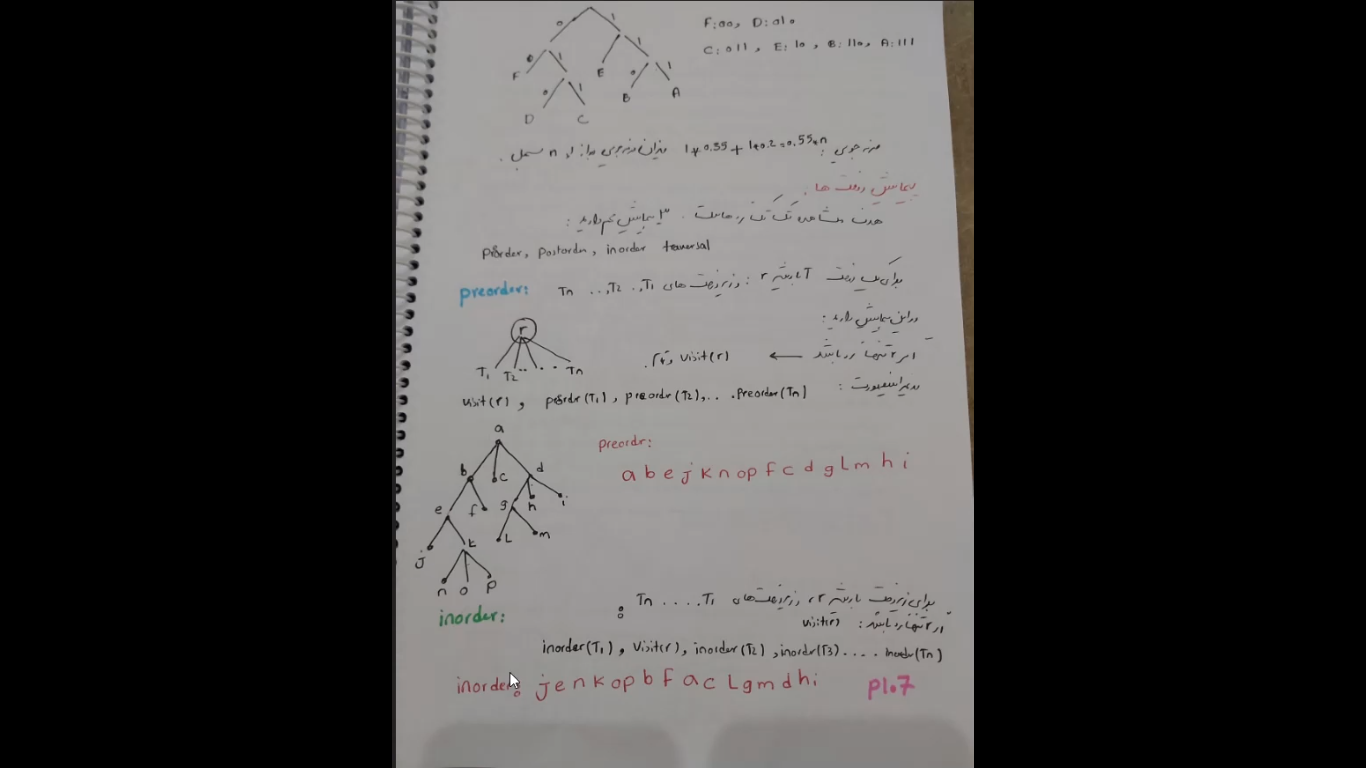 F:00, D:010
C:011, E:10, B:110, A:111
0 1
0 1 1
F 0 1 E 0 1
D C B A
صرفه جویی: 1*0.35 + 1*0.2 = 0.55*n میزان صرفه جویی به ازای n سمبل.
پیمایش درخت ها:
هدف مشاهده تک تک رئوس است. 3 پیمایش داریم:
preorder, postorder, inorder traversal
preorder: برای یک درخت T با ریشه r: و زیر درخت های T1, T2, ... Tn
در این پیمایش داریم:
اگر r تنها راس باشد ← visit(r)
در غیر اینصورت:
r
T1 T2 .. . . Tn
visit(r), preorder(T1), preorder(T2), ... Preorder(Tn)
a
preorder:
b c d
a b e j k n o p f c d g L m h i
e f g h i
j k L m
n o p
برای زیر درخت با ریشه r، و زیر درخت های T1 .... Tn:
inorder:
اگر r تنها راس باشد: visit(r)
inorder(T1), Visit(r), inorder(T2), inorder(T3) .... inorder(Tn)
inorder: j e n k o p b f a c L g m d h i
P1.7